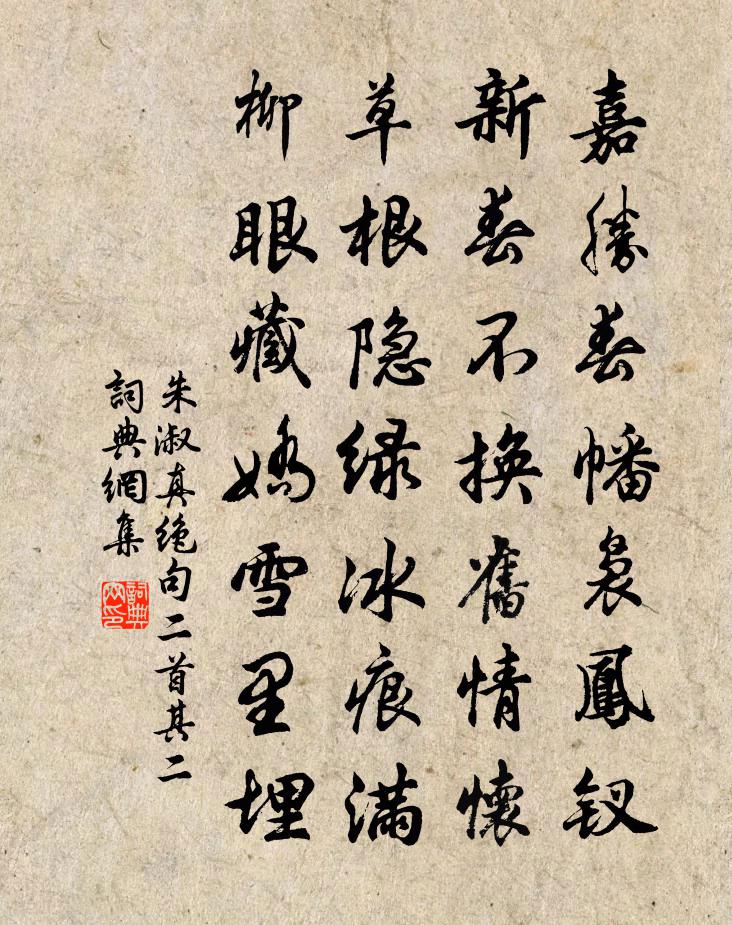 嘉勝春幡裊鳳釵
新春不換舊情懷
草根隐绿冰痕滿
柳眼藏嬌雪里埋
朱淑真绝句二首其二
詞典網集
詞典
网印